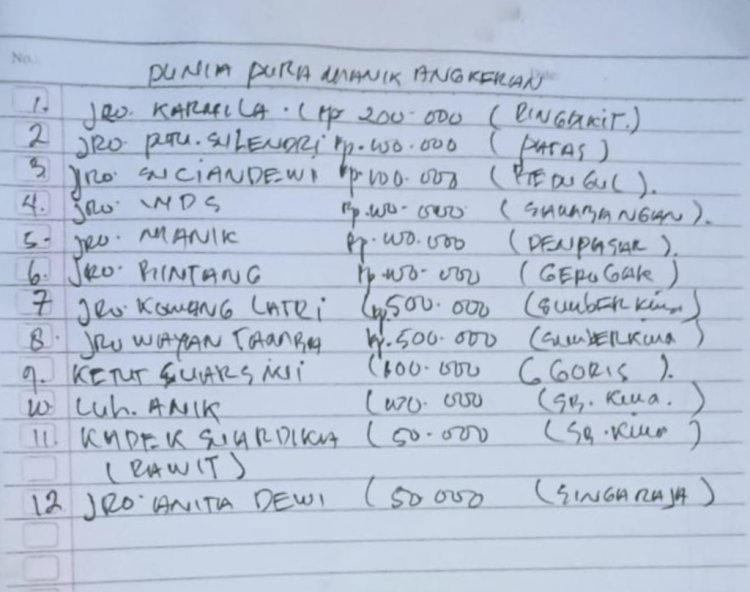 No.
DUNIA PURA MANIK ANGKERAN
1. JRO. KARMILA. (Rp 200.000 (RINGDIKIT.)
2 JRO. PTU. SILENDRI Rp. 100.000 (PATAS)
3. JRO. SUCIANDEWI Rp 100.000 (BEDUGUL).
4. JRO. MDS Rp. 100.000 (SUWABANGAN).
5. JRO. MANIK Rp. 100.000 (DENPASAR).
6. JRO. BINTANG Rp 100.000 (GEROGAK)
7 JRO. KOMANG LATRI (Rp 500.000 (SUMBERKIMA)
8. JRO WAYAN TAMBA Rp. 500.000 (SUMBERKIMA)
9. KETUT SUARSINI (100.000 (GGORIS).
10 LUH. ANIK (100.000 (SB. KIMA.)
11. KADEK SUARDIKA (50.000 (SB. KIMA)
(RAWIT)
12 JRO. ANITA DEWI (50 000 (SINGARAJA)